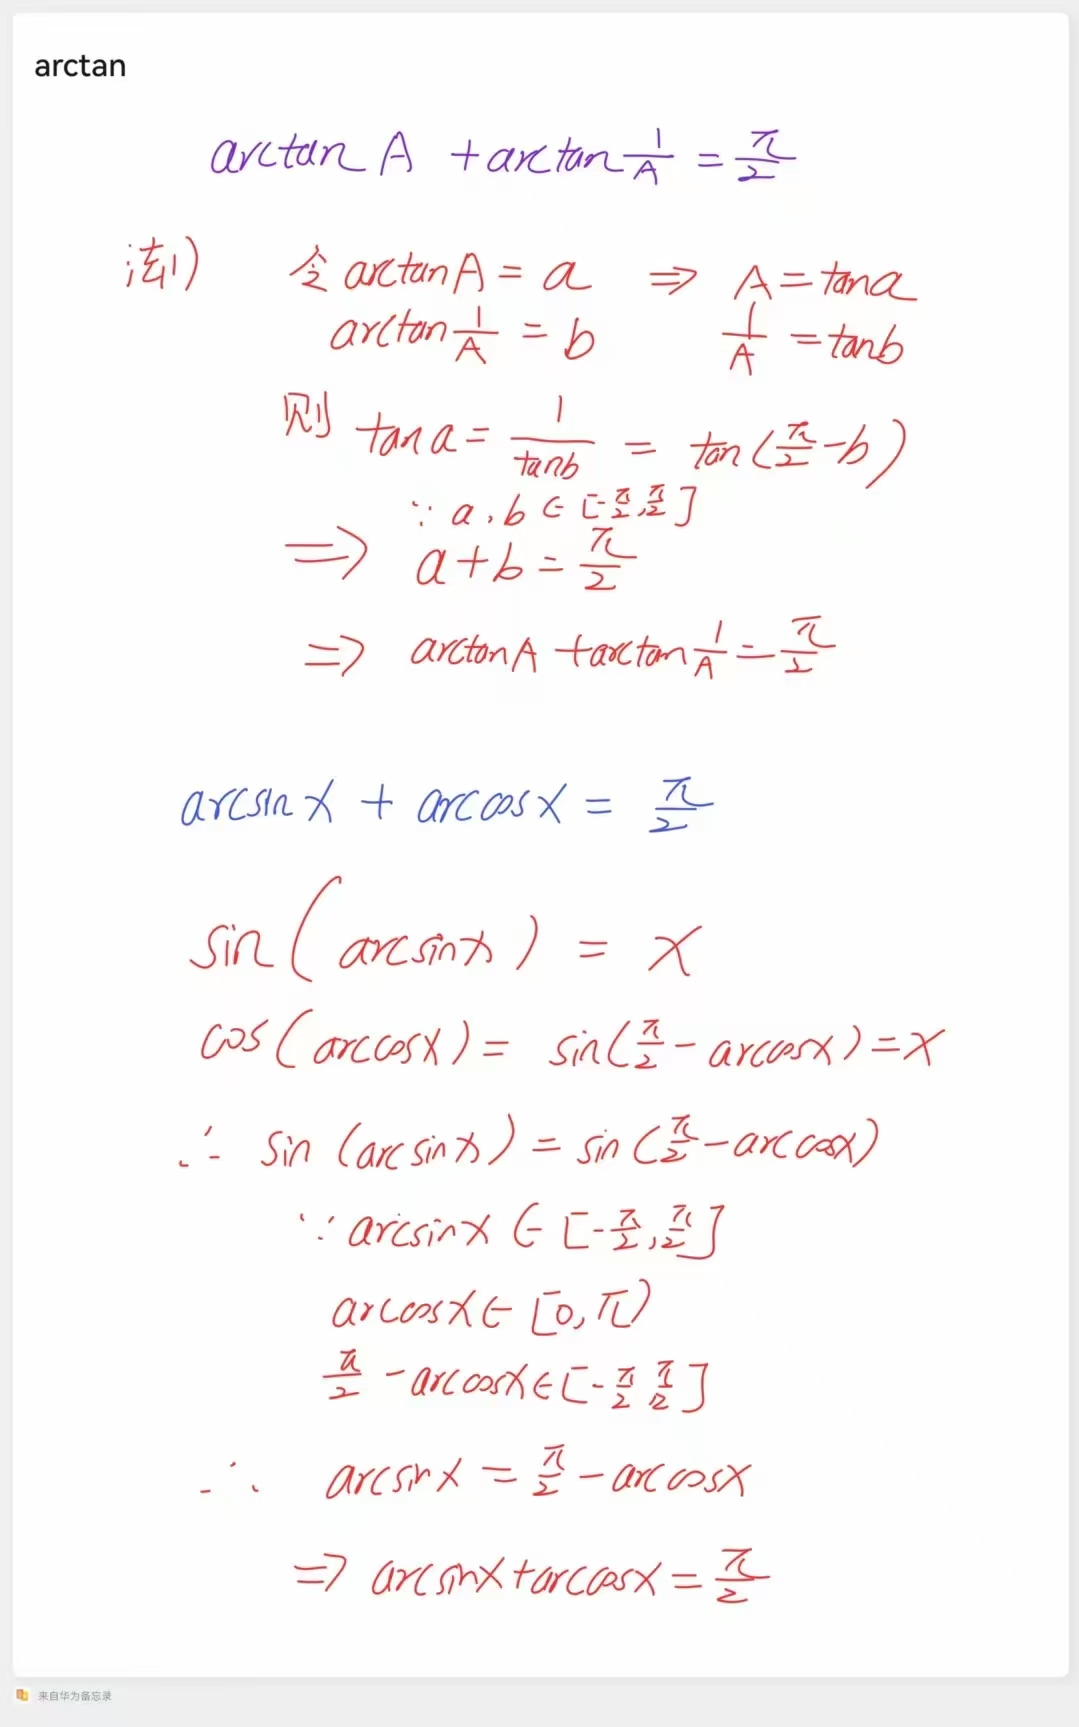 arctan
arctan A + arctan 1/A = π/2
法1) 令 arctan A = a ⇒ A = tan a
arctan 1/A = b 1/A = tan b
则 tan a = 1/tan b = tan(π/2 - b)
∵ a, b ∈ [-π/2, π/2]
⇒ a + b = π/2
⇒ arctan A + arctan 1/A = π/2
arcsin x + arccos x = π/2
sin(arcsin x) = x
cos(arccos x) = sin(π/2 - arccos x) = x
∴ sin(arcsin x) = sin(π/2 - arccos x)
∵ arcsin x ∈ [-π/2, π/2]
arccos x ∈ [0, π)
π/2 - arccos x ∈ [-π/2 π/2]
∴ arcsin x = π/2 - arccos x
⇒ arcsin x + arccos x = π/2
来自华为备忘录